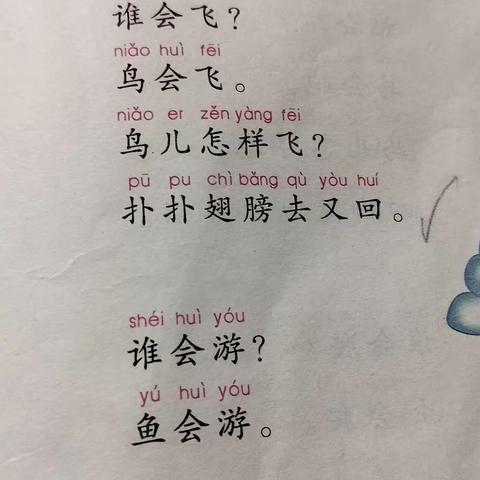 谁会飞?
niǎo huì fēi
鸟会飞。
niǎo er zěn yàng fēi
鸟儿怎样飞?
pū pu chì bǎng qù yòu huí
扑扑翅膀去又回。
shéi huì yóu
谁会游?
yú huì yóu
鱼会游。